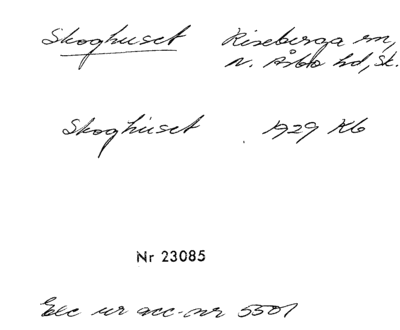 Skoghuset Riseberga sn,
N. Åsbo hd, Sk.
Skoghuset 1929 Kb
Nr 23085
Exc ur acc-nr 5501